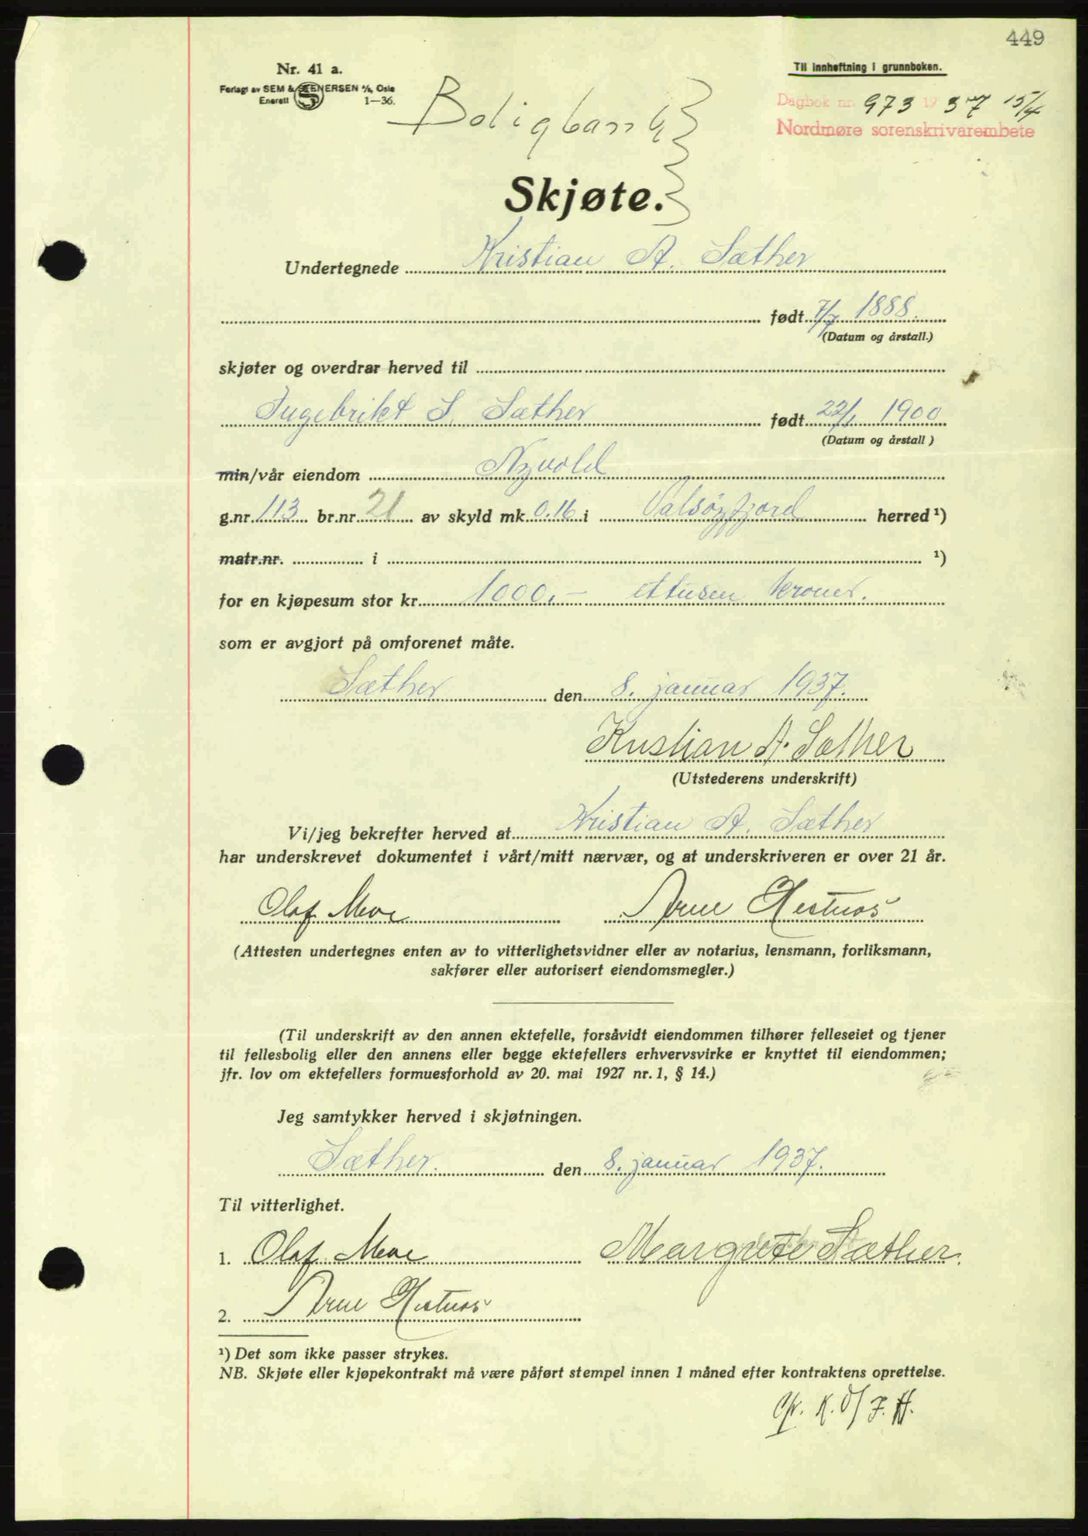 449
Nr. 41 a.
Forlagt av SEM & STENERSEN A/S, Oslo
Enerett 1—36.
Til innheftning i grunnboken.
Boligbank
Dagbok nr. 973 19 37 15/4
Nordmøre sorenskrivarembete
Skjøte.
Undertegnede Kristian A. Sæther
født 7/7 1888.
(Datum og årstall.)
skjøter og overdrar herved til
Ingebrikt S. Sæther født 22/1 1900
(Datum og årstall)
min/vår eiendom Nyvold
g.nr. 113 br.nr. 21 av skyld mk. 0.16 i Valsøyfjord herred ¹)
matr.nr. i ¹)
for en kjøpesum stor kr. 1000,- ettusen kroner.
som er avgjort på omforenet måte.
Sæther den 8. januar 1937.
Kristian A. Sæther
(Utstederens underskrift)
Vi/jeg bekrefter herved at Kristian A. Sæther
har underskrevet dokumentet i vårt/mitt nærvær, og at underskriveren er over 21 år.
Olaf Moe Arne Hestnes
(Attesten undertegnes enten av to vitterlighetsvidner eller av notarius, lensmann, forliksmann,
sakfører eller autorisert eiendomsmegler.)
(Til underskrift av den annen ektefelle, forsåvidt eiendommen tilhører felleseiet og tjener
til fellesbolig eller den annens eller begge ektefellers erhvervsvirke er knyttet til eiendommen;
jfr. lov om ektefellers formuesforhold av 20. mai 1927 nr. 1, § 14.)
Jeg samtykker herved i skjøtningen.
Sæther. den 8. januar 1937.
Til vitterlighet.
1. Olaf Moe Margrete Sæther.
2. Arne Hestnes
¹) Det som ikke passer strykes.
NB. Skjøte eller kjøpekontrakt må være påført stempel innen 1 måned efter kontraktens oprettelse.
K. O/J. H.